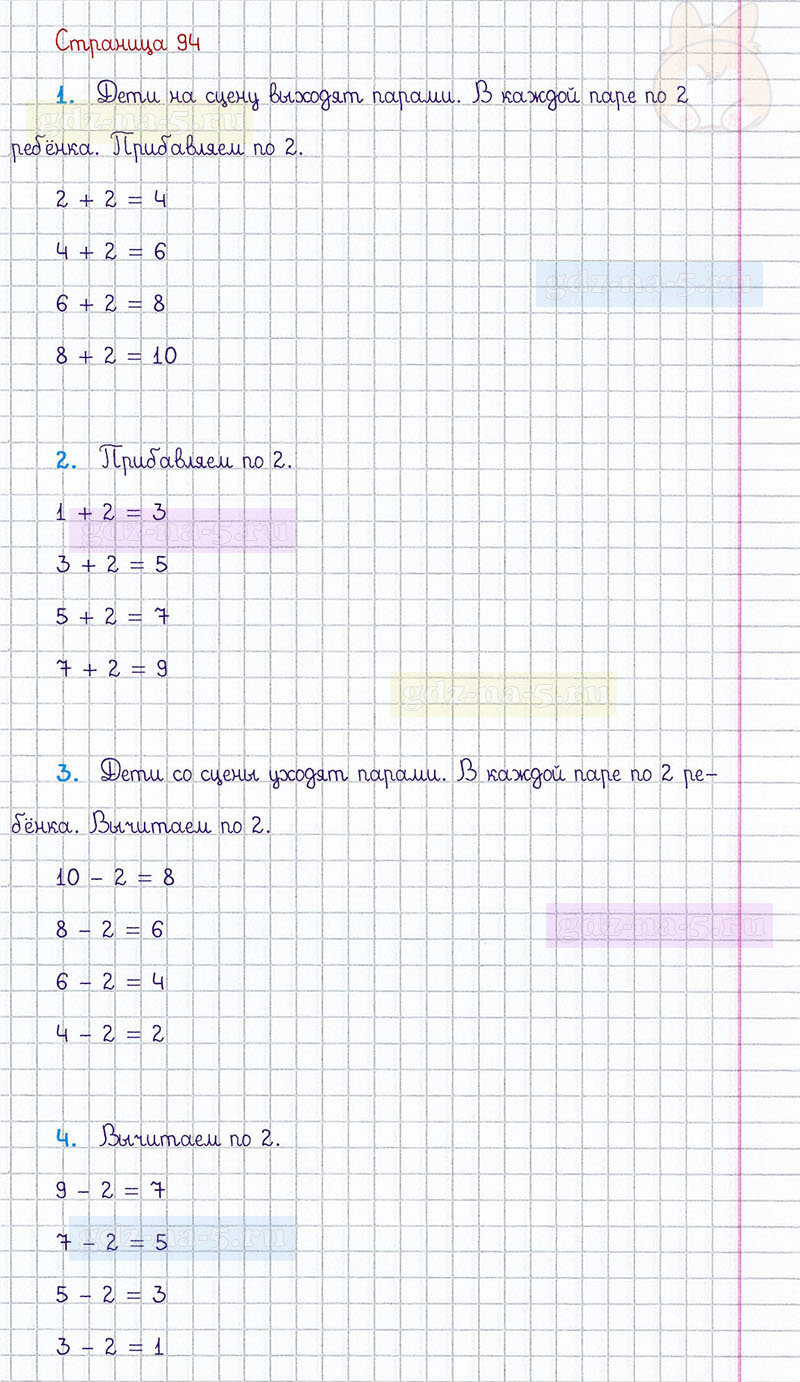 Страница 94
1. Дети на сцену выходят парами. В каждой паре по 2
gdz-na-5.ru
ребёнка. Прибавляем по 2.
2 + 2 = 4
4 + 2 = 6
gdz-na-5.ru
6 + 2 = 8
8 + 2 = 10
2. Прибавляем по 2.
1 + 2 = 3
gdz-na-5.ru
3 + 2 = 5
5 + 2 = 7
7 + 2 = 9
gdz-na-5.ru
3. Дети со сцены уходят парами. В каждой паре по 2 ре-
бёнка. Вычитаем по 2.
10 - 2 = 8
8 - 2 = 6
gdz-na-5.ru
6 - 2 = 4
4 - 2 = 2
4. Вычитаем по 2.
9 - 2 = 7
7 - 2 = 5
gdz-na-5.ru
5 - 2 = 3
3 - 2 = 1